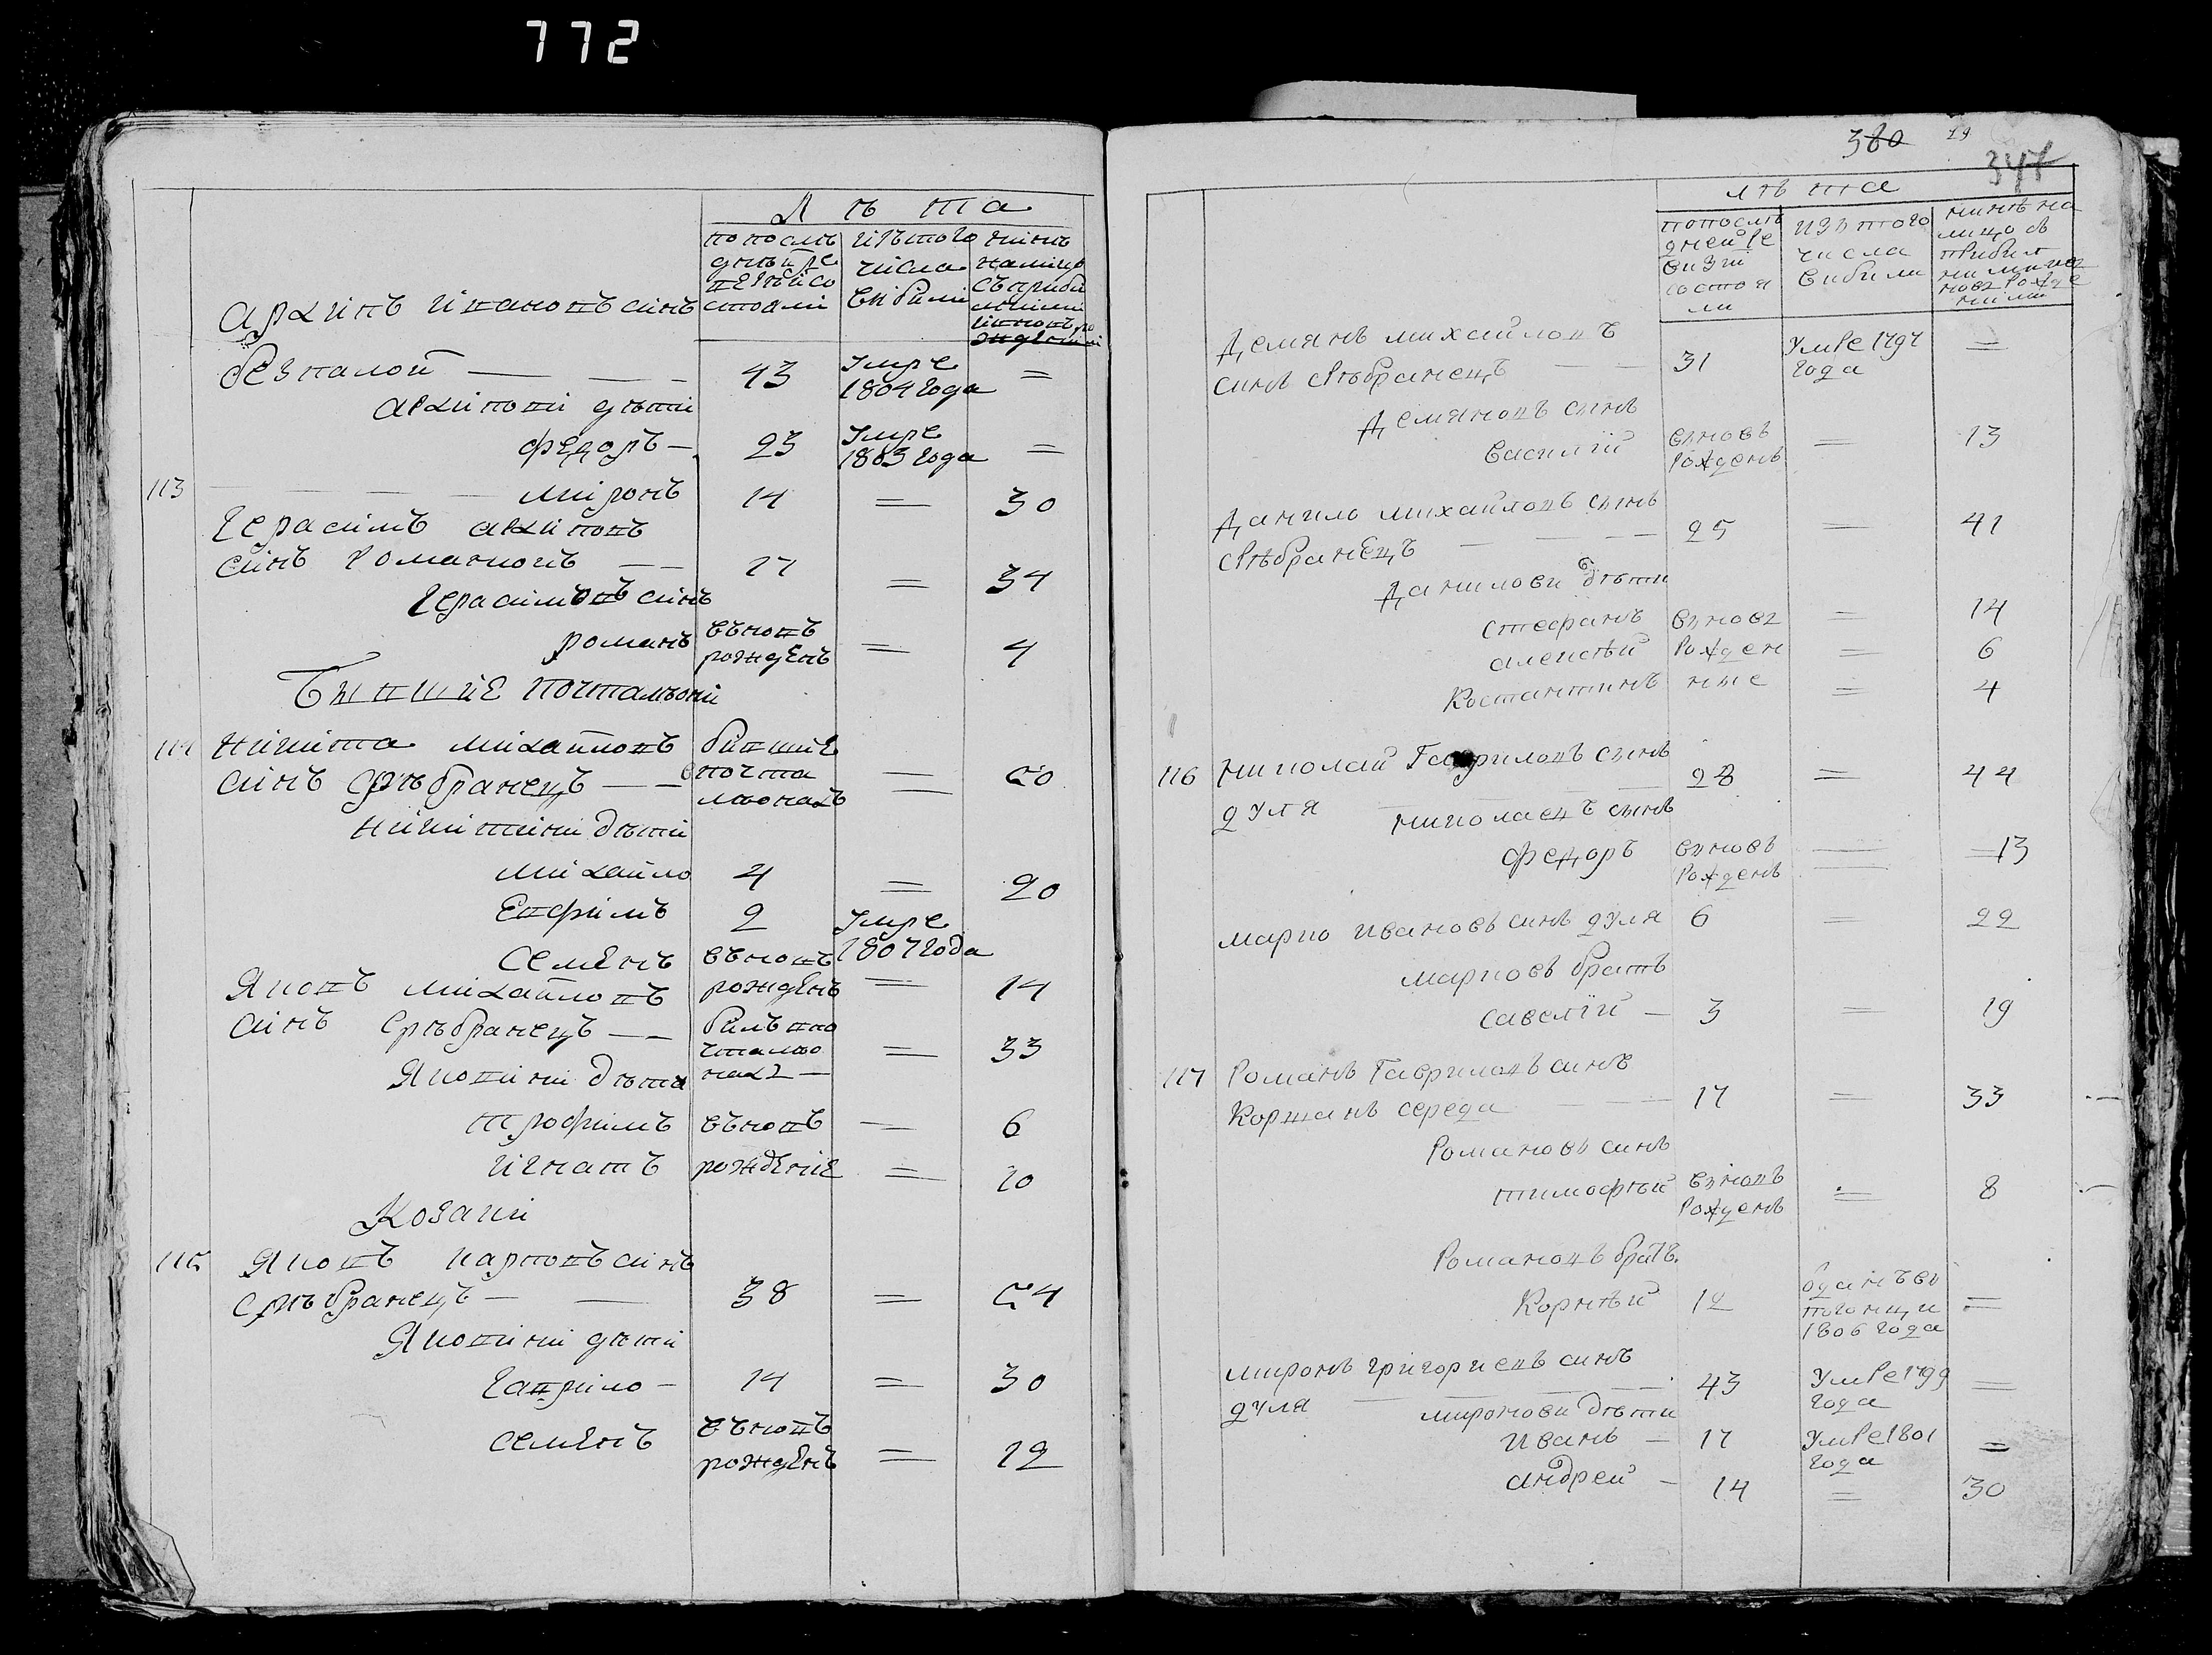 772
Лѣта
попослѣ дней ре визѣи со стояли
изътого числа вибили
нинѣ налицо съприби лими ивновъ ро жденими
Архипъ Ивановъ синъ
безпалой — — — 43 Умре 1804 года =
Архипови дѣти
Федоръ — 23 Умре 1803 года =
113 — — — — миронъ 14 = 30
Герасимъ архиповъ
синъ Романовъ — — 17 = 34
Герасимовъ синъ
романъ вѣновъ рожденъ = 4
Бывшие почтальони
114 Никита михайловъ бившие
синъ Срѣбранецъ — — почта льонахъ = 50
Никитини дѣти
михайло 4 = 20
Евфимъ 2 Умре 1807 года
Семенъ вѣновъ рожденъ = 14
Яковъ михайловъ
синъ Срѣбранецъ — — билъ по чтальо нахъ — = 33
Яковини дѣти
трофимъ вѣновъ = 6
игнатъ рождение = 10
Козаки
115 Яковъ карповъ синъ
Срѣбранецъ — — 38 = 54
Яковини дѣти
гаврило — 14 = 30
семенъ вѣновъ рожденъ = 12
380 29
347
лѣта
попослѣ дней ре визѣи состоя ли
изъ того числа вибили
нинѣ на лицо съ прибил ми ивно новъ рожде ними
Демянъ михайловъ
синъ Срѣбранецъ — — 31 Умре 1797 года =
Демяновъ синъ
василий вновь рожденъ = 13
Данило михайловъ синъ
Срѣбранецъ — — — 25 = 41
Данилови дѣти
стефанъ вновь = 14
алексѣй рожден = 6
Костантинъ ные = 4
116 николай Гавриловъ синъ
дуля — — — 28 = 44
николаевъ синъ
федоръ вновь рожденъ = 13
марко ивановъ синъ дуля 6 = 22
марковъ братъ
савелий — 3 = 19
117 Романъ Гавриловъ синъ
Коржанъ середа — — — 17 = 33
Романовъ синъ
тимофѣй вновь рожденъ = 8
Романовъ братъ
Корнѣй 12 оданъ въ погонци 1806 года =
миронъ григориевъ синъ
дуля — — — 43 Умре 1799 года =
миронови дѣти
иванъ — 17 Умре 1801 года =
андрей — 14 = 30